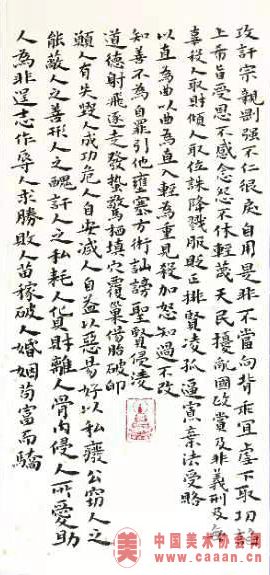 攻訐宗親剛强不仁很戾自用是非不當向背乖宜虐下取功諂
上希旨受恩不感念怨不休輕蔑天民擾亂國政賞及非義刑及無
辜殺人取財傾人取位誅降戮服貶正排賢凌孤逼寡棄法受賂
以直為曲以曲為直入輕為重見殺加怒知過不改
知善不為自罪引他壅塞方術訕謗聖賢侵凌
道德射飛逐走發蟄驚棲填穴覆巢傷胎破卵
願人有失毀人成功危人自安減人自益以惡易好以私廢公竊人之
能蔽人之善形人之醜訐人之私耗人貨財離人骨肉侵人所愛助
人為非逞志作辱人求勝敗人苗稼破人婚姻苟富而驕
美
中国美术协会网
www.caaan.cn